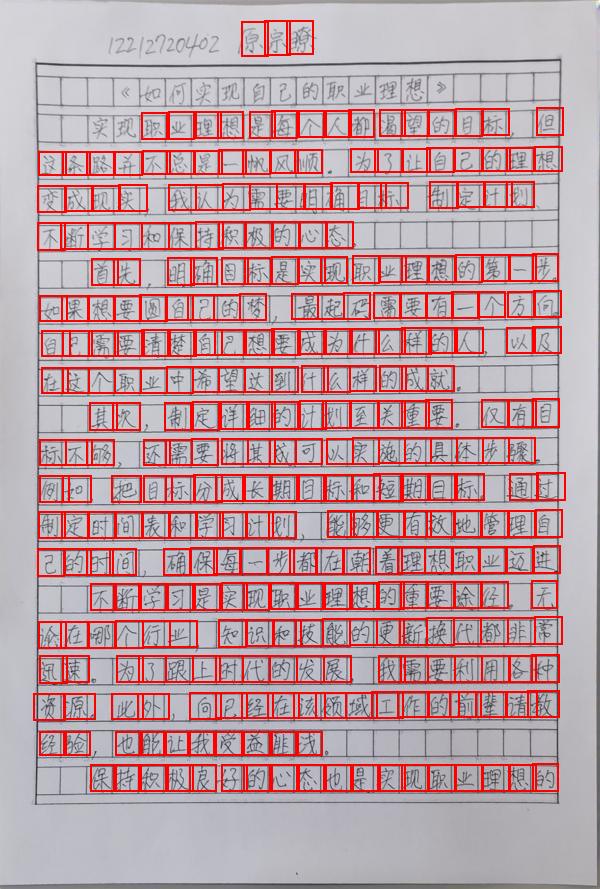 12212720402 原宗瞭
《如何实现自己的职业理想》
实现职业理想是每个人都渴望的目标,但
这条路并不总是一帆风顺。为了让自己的理想
变成现实,我认为需要明确目标、制定计划、
不断学习和保持积极的心态。
首先,明确目标是实现职业理想的第一步。
如果想要圆自己的梦,最起码需要有一个方向。
自己需要清楚自己想要成为什么样的人,以及
在这个职业中希望达到什么样的成就。
其次,制定详细的计划至关重要。仅有目
标不够,还需要将其成可以实施的具体步骤。
例如,把目标分成长期目标和短期目标。通过
制定时间表和学习计划,能够更有效地管理自
己的时间,确保每一步都在朝着理想职业迈进
不断学习是实现职业理想的重要途径。无
论在哪个行业,知识和技能的更新换代都非常
迅速。为了跟上时代的发展。我需要利用各种
资源。此外,向已经在该领域工作的前辈请教
经验,也能让我受益匪浅。
保持积极良好的心态也是实现职业理想的